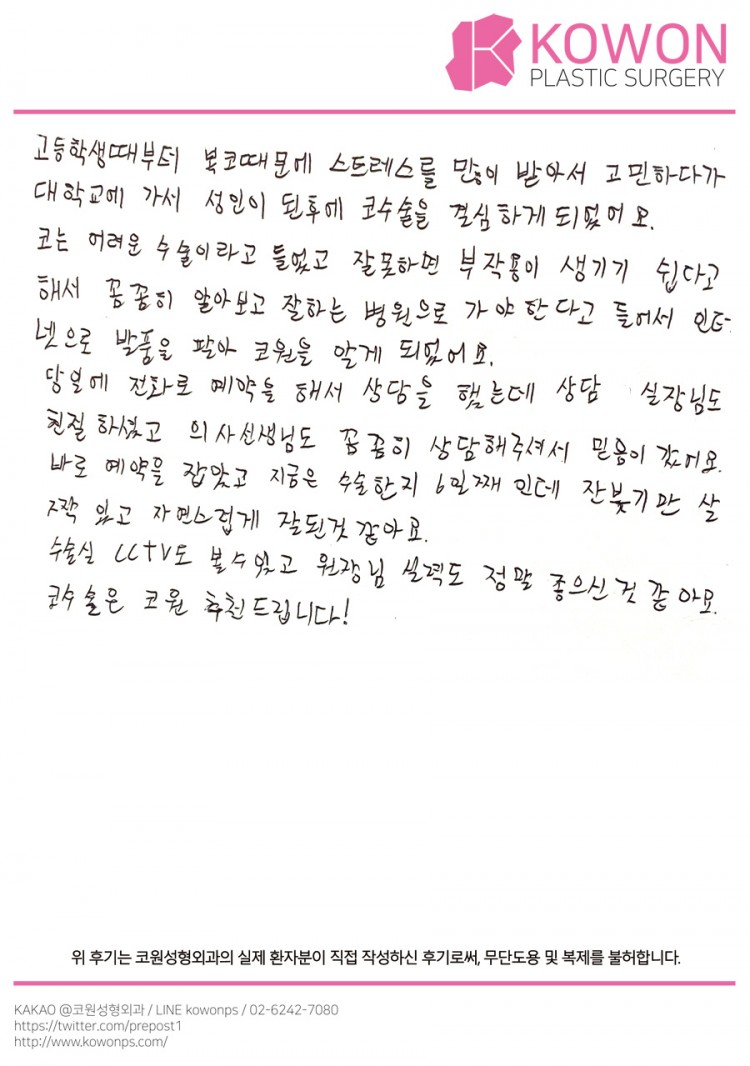 KOWON
PLASTIC SURGERY
고등학생때부터 복코때문에 스트레스를 많이 받아서 고민하다가
대학교에 가서 성인이 된후에 코수술을 결심하게되었어요.
코는 어려운 수술이라고 들었고 잘못하면 부작용이 생기기 쉽다고
해서 꼼꼼히 알아보고 잘하는 병원으로 가야한다고 들어서 인터
넷으로 발품을 팔아 코원을 알게 되었어요.
당일에 전화로 예약을 해서 상담을 했는데 상담 실장님도
친절하셨고 의사선생님도 꼼꼼히 상담해주셔서 믿음이 갔어요.
바로 예약을 잡았고 지금은 수술한지 6일째인데 잔붓기만 살
짝 있고 자연스럽게 잘된것 같아요.
수술실 CCTV도 볼수있고 원장님 실력도 정말 좋으신것 같아요.
코수술은 코원 추천드립니다!
위 후기는 코원성형외과의 실제 환자분이 직접 작성하신 후기로써, 무단도용 및 복제를 불허합니다.
KAKAO @코원성형외과 / LINE kowonps / 02-6242-7080
https://twitter.com/prepost1
http://www.kowonps.com/